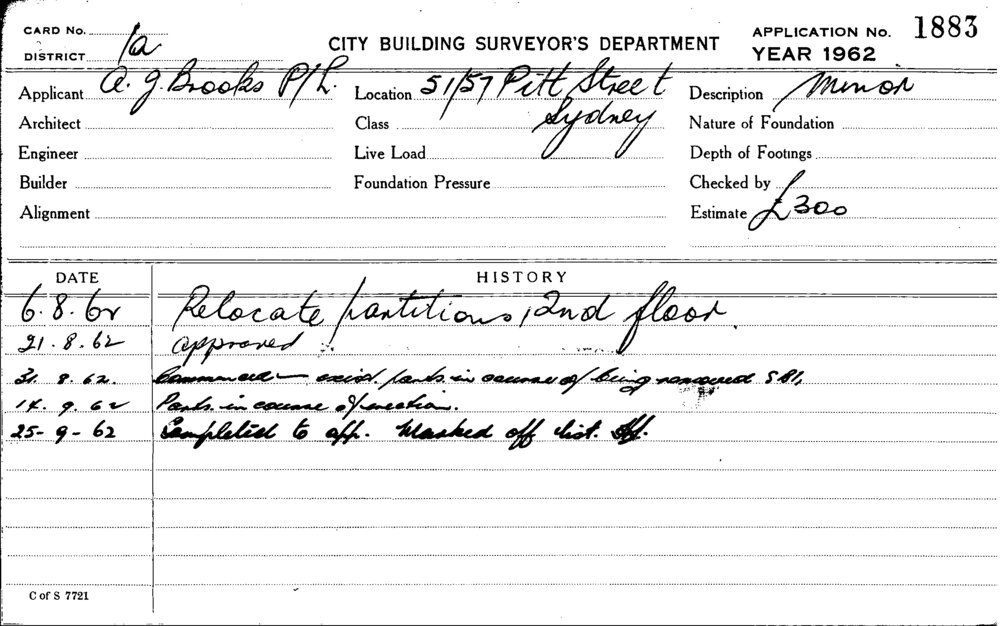 CARD No. CITY BUILDING SURVEYOR'S DEPARTMENT APPLICATION No. 1883
DISTRICT 1a YEAR 1962
Applicant A. G. Brooks P/L. Location 51/57 Pitt Street Description Minor
Architect Class Sydney Nature of Foundation
Engineer Live Load Depth of Footings
Builder Foundation Pressure Checked by
Alignment Estimate £300
DATE HISTORY
6.8.62 Relocate partitions, 2nd floor.
21.8.62 approved
31.8.62. Commenced — exist. parts. in course of being removed
14.9.62 Parts. in course of erection.
25-9-62 Completed to app. Marked off list.
C of S 7721